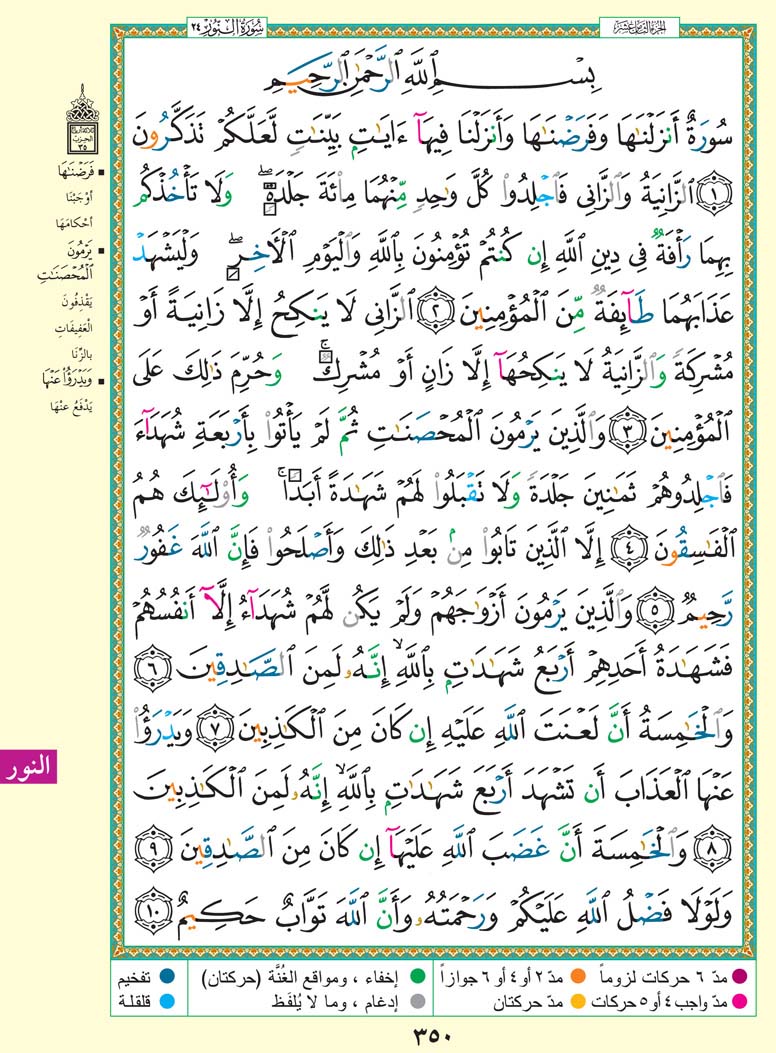 الجزء الثامن عشر
سُورَةُ النُّورِ ٢٤
بِسْمِ ٱللَّهِ ٱلرَّحْمَٰنِ ٱلرَّحِيمِ
سُورَةٌ أَنزَلْنَٰهَا وَفَرَضْنَٰهَا وَأَنزَلْنَا فِيهَآ ءَايَٰتٍۭ بَيِّنَٰتٍ لَّعَلَّكُمْ تَذَكَّرُونَ
١ ٱلزَّانِيَةُ وَٱلزَّانِى فَٱجْلِدُوا۟ كُلَّ وَٰحِدٍ مِّنْهُمَا مِا۟ئَةَ جَلْدَةٍۖ وَلَا تَأْخُذْكُم
بِهِمَا رَأْفَةٌ فِى دِينِ ٱللَّهِ إِن كُنتُمْ تُؤْمِنُونَ بِٱللَّهِ وَٱلْيَوْمِ ٱلْأَخِرِۖ وَلْيَشْهَدْ
عَذَابَهُمَا طَآئِفَةٌ مِّنَ ٱلْمُؤْمِنِينَ ٢ ٱلزَّانِى لَا يَنكِحُ إِلَّا زَانِيَةً أَوْ
مُشْرِكَةً وَٱلزَّانِيَةُ لَا يَنكِحُهَآ إِلَّا زَانٍ أَوْ مُشْرِكٌۚ وَحُرِّمَ ذَٰلِكَ عَلَى
ٱلْمُؤْمِنِينَ ٣ وَٱلَّذِينَ يَرْمُونَ ٱلْمُحْصَنَٰتِ ثُمَّ لَمْ يَأْتُوا۟ بِأَرْبَعَةِ شُهَدَآءَ
فَٱجْلِدُوهُمْ ثَمَٰنِينَ جَلْدَةً وَلَا تَقْبَلُوا۟ لَهُمْ شَهَٰدَةً أَبَدًاۚ وَأُو۟لَٰٓئِكَ هُمُ
ٱلْفَٰسِقُونَ ٤ إِلَّا ٱلَّذِينَ تَابُوا۟ مِنۢ بَعْدِ ذَٰلِكَ وَأَصْلَحُوا۟ فَإِنَّ ٱللَّهَ غَفُورٌ
رَّحِيمٌ ٥ وَٱلَّذِينَ يَرْمُونَ أَزْوَٰجَهُمْ وَلَمْ يَكُن لَّهُمْ شُهَدَآءُ إِلَّآ أَنفُسُهُمْ
فَشَهَٰدَةُ أَحَدِهِمْ أَرْبَعُ شَهَٰدَٰتٍۭ بِٱللَّهِۙ إِنَّهُۥ لَمِنَ ٱلصَّٰدِقِينَ ٦
وَٱلْخَٰمِسَةُ أَنَّ لَعْنَتَ ٱللَّهِ عَلَيْهِ إِن كَانَ مِنَ ٱلْكَٰذِبِينَ ٧ وَيَدْرَؤُا۟
عَنْهَا ٱلْعَذَابَ أَن تَشْهَدَ أَرْبَعَ شَهَٰدَٰتٍۭ بِٱللَّهِۙ إِنَّهُۥ لَمِنَ ٱلْكَٰذِبِينَ
٨ وَٱلْخَٰمِسَةَ أَنَّ غَضَبَ ٱللَّهِ عَلَيْهَآ إِن كَانَ مِنَ ٱلصَّٰدِقِينَ ٩
وَلَوْلَا فَضْلُ ٱللَّهِ عَلَيْكُمْ وَرَحْمَتُهُۥ وَأَنَّ ٱللَّهَ تَوَّابٌ حَكِيمٌ ١٠
الحزب
٣٥
فَرَضْنَٰهَا
أَوْجَبْنَا
أحْكامَهَا
يَرْمُونَ
ٱلْمُحْصَنَٰتِ
يَقْذِفُونَ
العَفِيفَاتِ
بالزِّنَا
وَيَدْرَؤُا۟ عَنْهَا
يَدْفَعُ عَنْهَا
النور
مدّ ٦ حركات لزوماً
مدّ ٢ أو ٤ أو ٦ جوازاً
إخفاء ، ومواقع الغُنَّة (حركتان)
تفخيم
مدّ واجب ٤ أو ٥ حركات
مدّ حركتان
إدغام ، وما لا يُلفَظ
قلقلة
٣٥٠